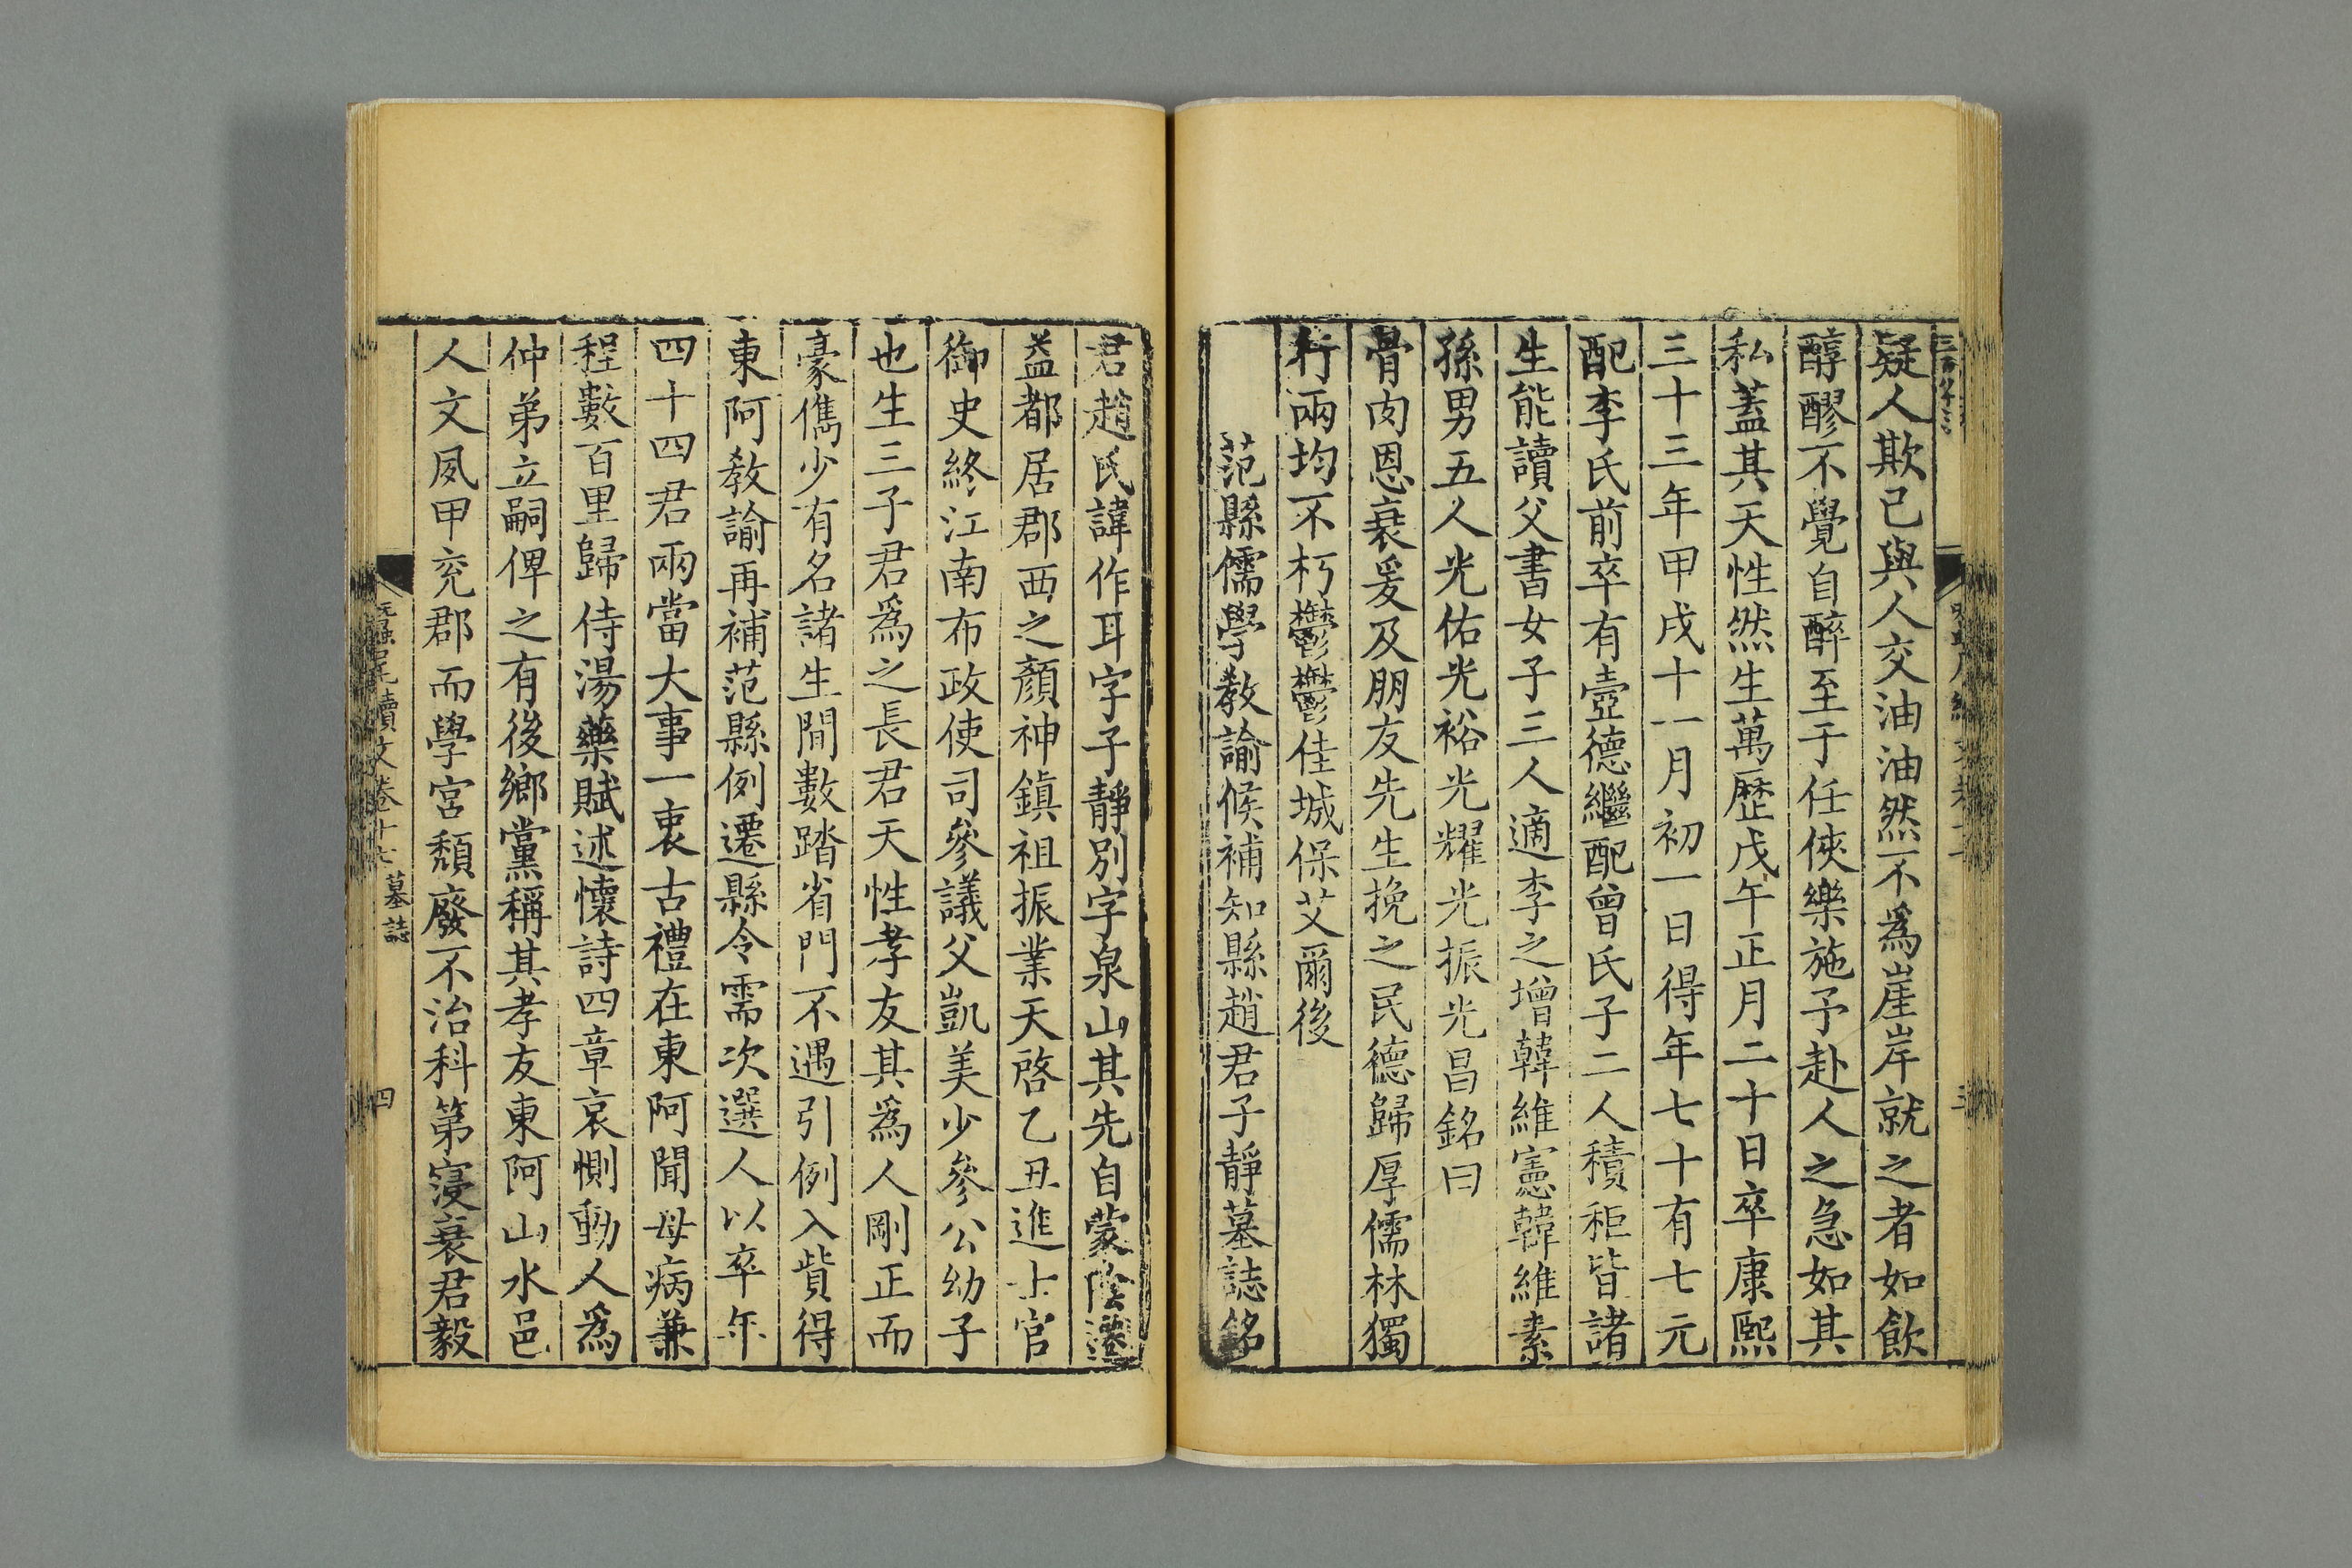 疑人欺已與人交油油然不爲崖岸就之者如飲
醇醪不覺自醉至于任俠樂施予赴人之急如其
私蓋其天性然生萬歷戊午正月二十日卒康熙
三十三年甲戌十一月初一日得年七十有七元
配李氏前卒有壼德繼配曾氏子二人積秬皆諸
生能讀父書女子三人適李之增韓維憲韓維素
孫男五人光佑光裕光耀光振光昌銘曰
骨肉恩衰爰及朋友先生挽之民德歸厚儒林獨
行兩均不朽鬱鬱佳城保艾爾後
范縣儒學教諭候補知縣趙君子靜墓誌銘
君趙氏諱作耳字子靜別字泉山其先自蒙陰遷
益都居郡西之顏神鎮祖振業天啓乙丑進士官
御史終江南布政使司參議父凱美少參公幼子
也生三子君爲之長君天性孝友其爲人剛正而
豪儁少有名諸生間數踏省門不遇引例入貲得
東阿教諭再補范縣例遷縣令需次選人以卒年
四十四君兩當大事一衷古禮在東阿聞母病兼
程數百里歸侍湯藥賦述懷詩四章哀惻動人爲
仲弟立嗣俾之有後鄉黨稱其孝友東阿山水邑
人文夙甲兖郡而學宮頹廢不治科第寖衰君毅
蠶尾續文卷十七 墓誌 四